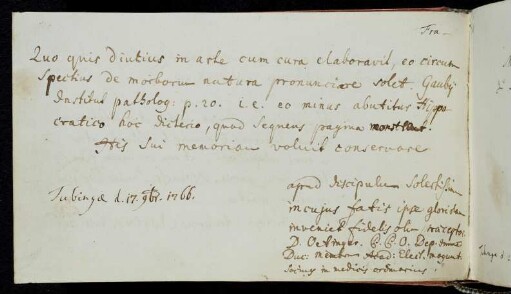 Fra-
Quo quis diutius in arte cum cura elaboravit, eo circum
spectius de morborum natura pronunciare solet Gaubij
Institut patholog: p. 20. i.e. eo minus abutitur Hippo
cratico hoc dicterio, quod sequens pagina monstrat.
His sui memoriam voluit conservare
Tubingæ d. 17. 9br. 1766.
apud discipulum solertissim
in cujus fatis ipse gloriolam
inveniet fidelis olim præceptor
D. Oetinger. P. P. O.
Duc: membrum Acad: Elect. mogunt
Socius in medicis ordinarius.